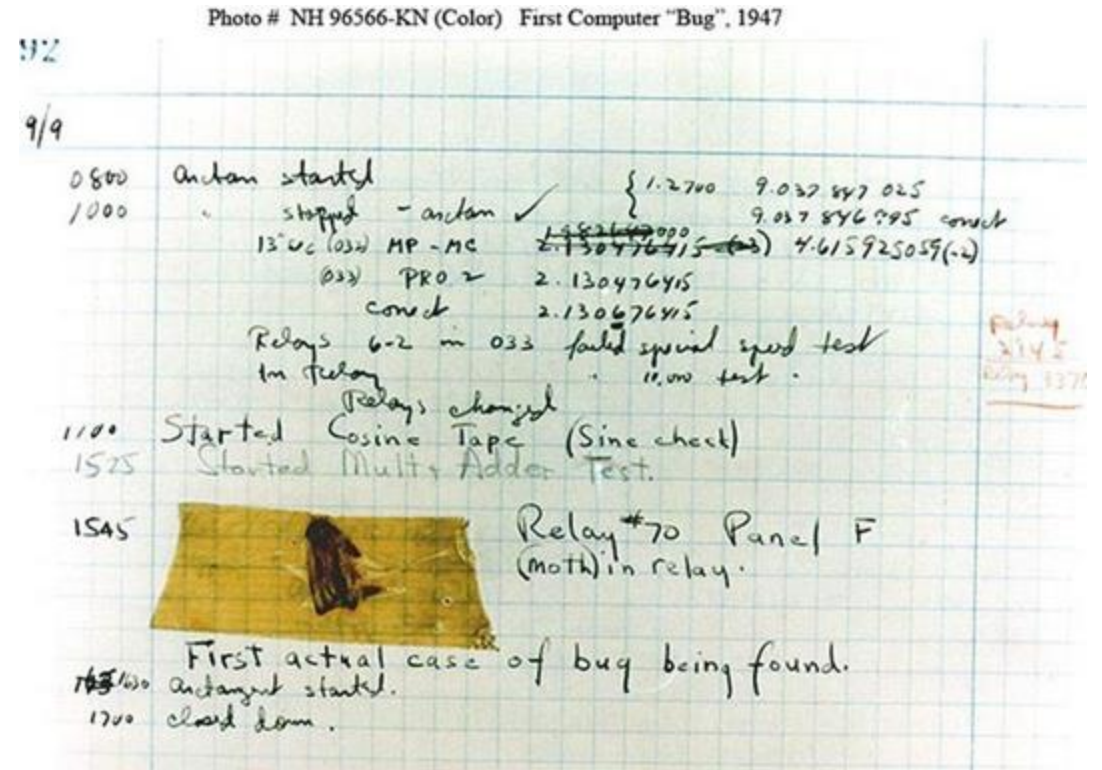 Photo # NH 96566-KN (Color) First Computer "Bug", 1947
92
9/9
0800 Antan started { 1.2700 9.037 847 025
1000 " stopped - antan ✓ 9.037 846 995 conect
13"uc (032) MP - MC 2.130476415 (-3) 4.615925059(-2)
(033) PRO 2 2.130476415
conect 2.130676415
Relays 6-2 in 033 failed special speed test
In Relay " 10,000 test .
Relays changed
1100 Started Cosine Tape (Sine check)
1525 Started Mult + Adder Test.
1545 Relay #70 Panel F
(moth) in relay.
First actual case of bug being found.
1630 Antangent started.
1700 closed down.
Relay
2145
Relay 337